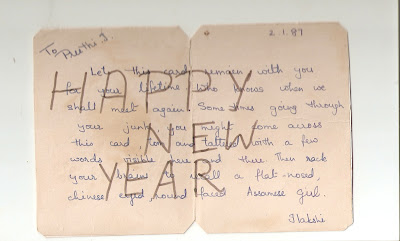 To Preethi J.
2.1.87
Let this card remain with you
for your lifetime. Who knows when we
shall meet again. Sometimes going through
your junk you might come across
this card, torn and tattered with a few
words visible here and there. Then rack
your brains to recall a flat-nosed,
chinese eyed, round faced Assamese girl.
HAPPY
NEW
YEAR